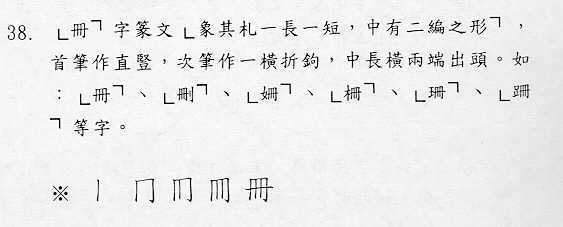 38. 「冊」字篆文「象其札一長一短，中有二編之形」，
首筆作直豎，次筆作一橫折鉤，中長橫兩端出頭。如
：「冊」、「刪」、「姍」、「柵」、「珊」、「跚
」等字。
※ 丨 冂 冃 冊